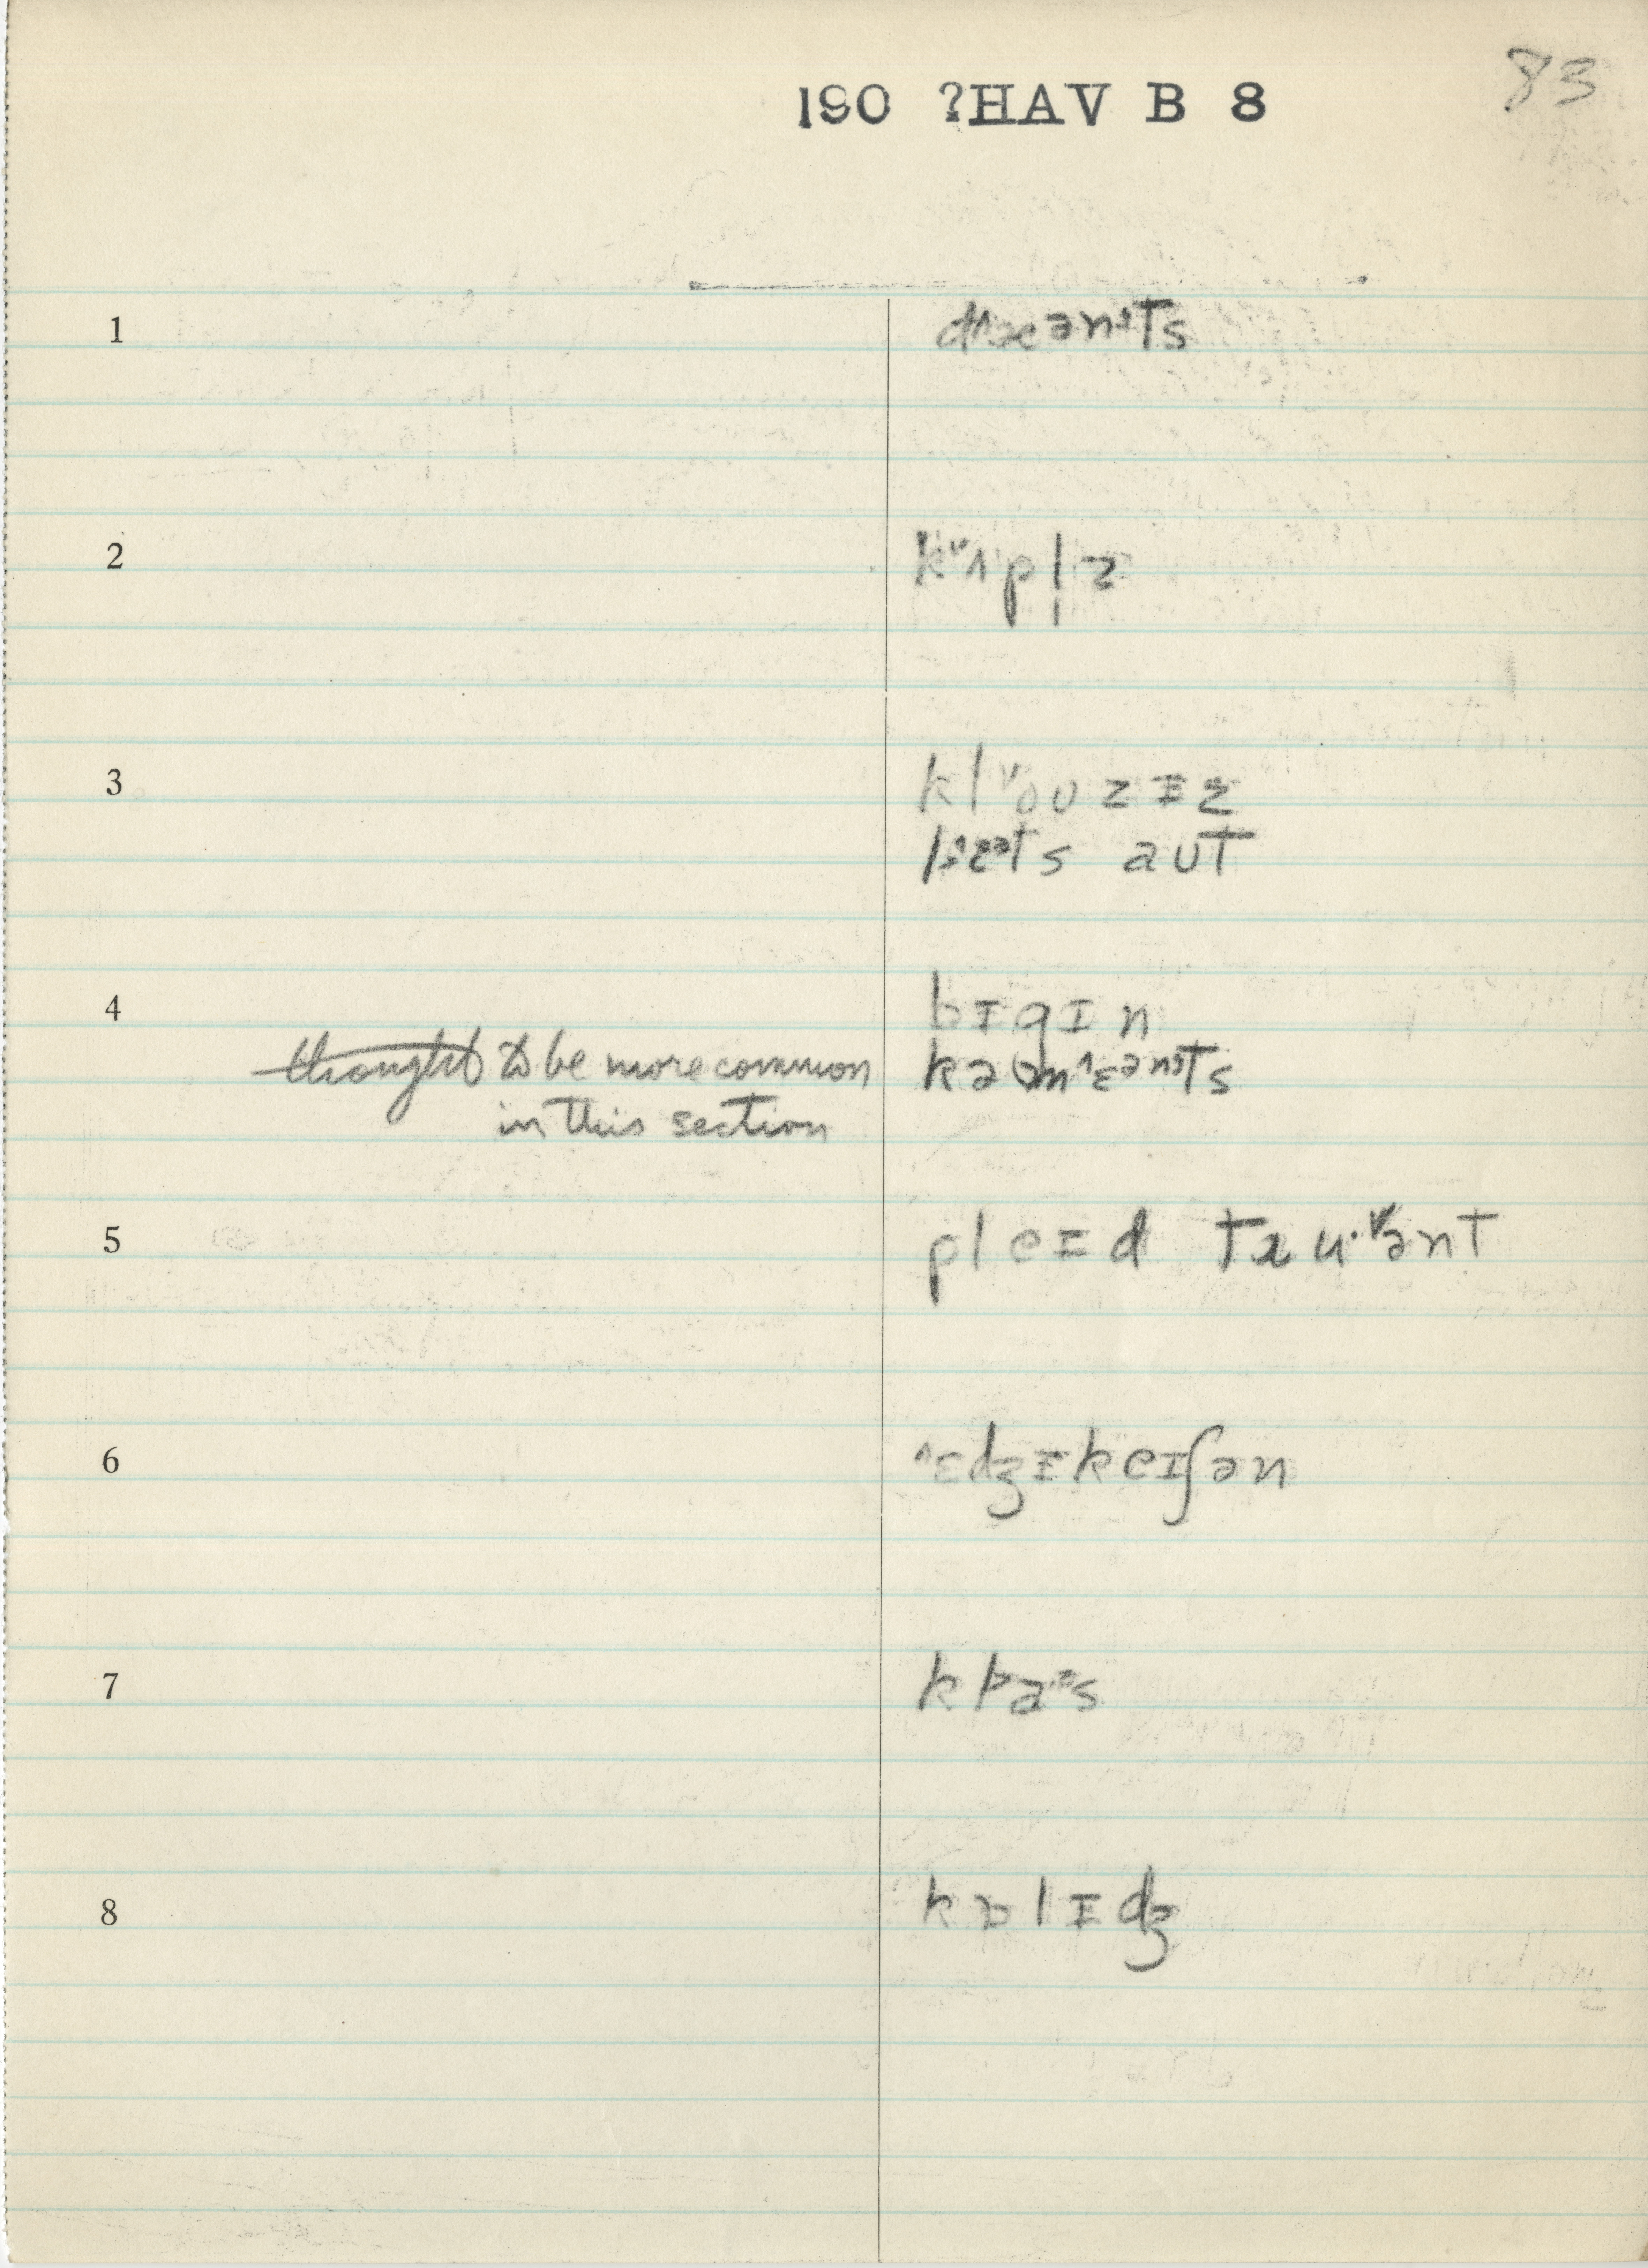 190 ?HAV B 8
83
1
dæənts
2
kʌpl̩z
3
kloʊzɪz
lɛts aʊt
4
bɪgɪn
thought to be more common
kəmɛənts
in this section
5
pleɪd tɹuənt
6
ɛdʒɪkeɪʃən
7
8
kɒlɪdʒ